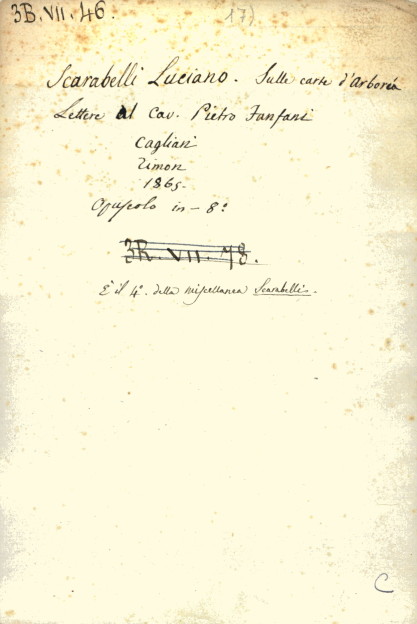 3B.VII.46.
17)
Scarabelli Luciano. Sulle carte d'Arboréa
Lettere al Cav. Pietro Fanfani
Cagliari
Timon
1865.
Opuscolo in-8.º
3B.VII.78.
È il 4º. della miscellanea Scarabelli.
C